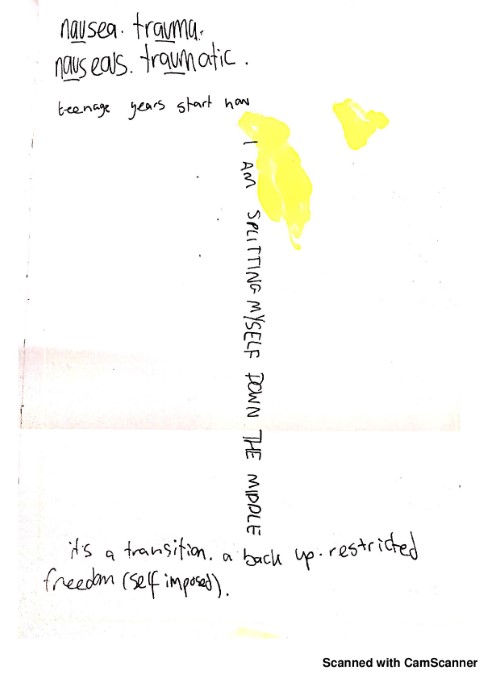 nausea. trauma.
nauseaus. traumatic.
teenage years start now
I AM SPLITTING MYSELF DOWN THE MIDDLE
it's a transition. a back up. restricted
freedom (self imposed).
Scanned with CamScanner